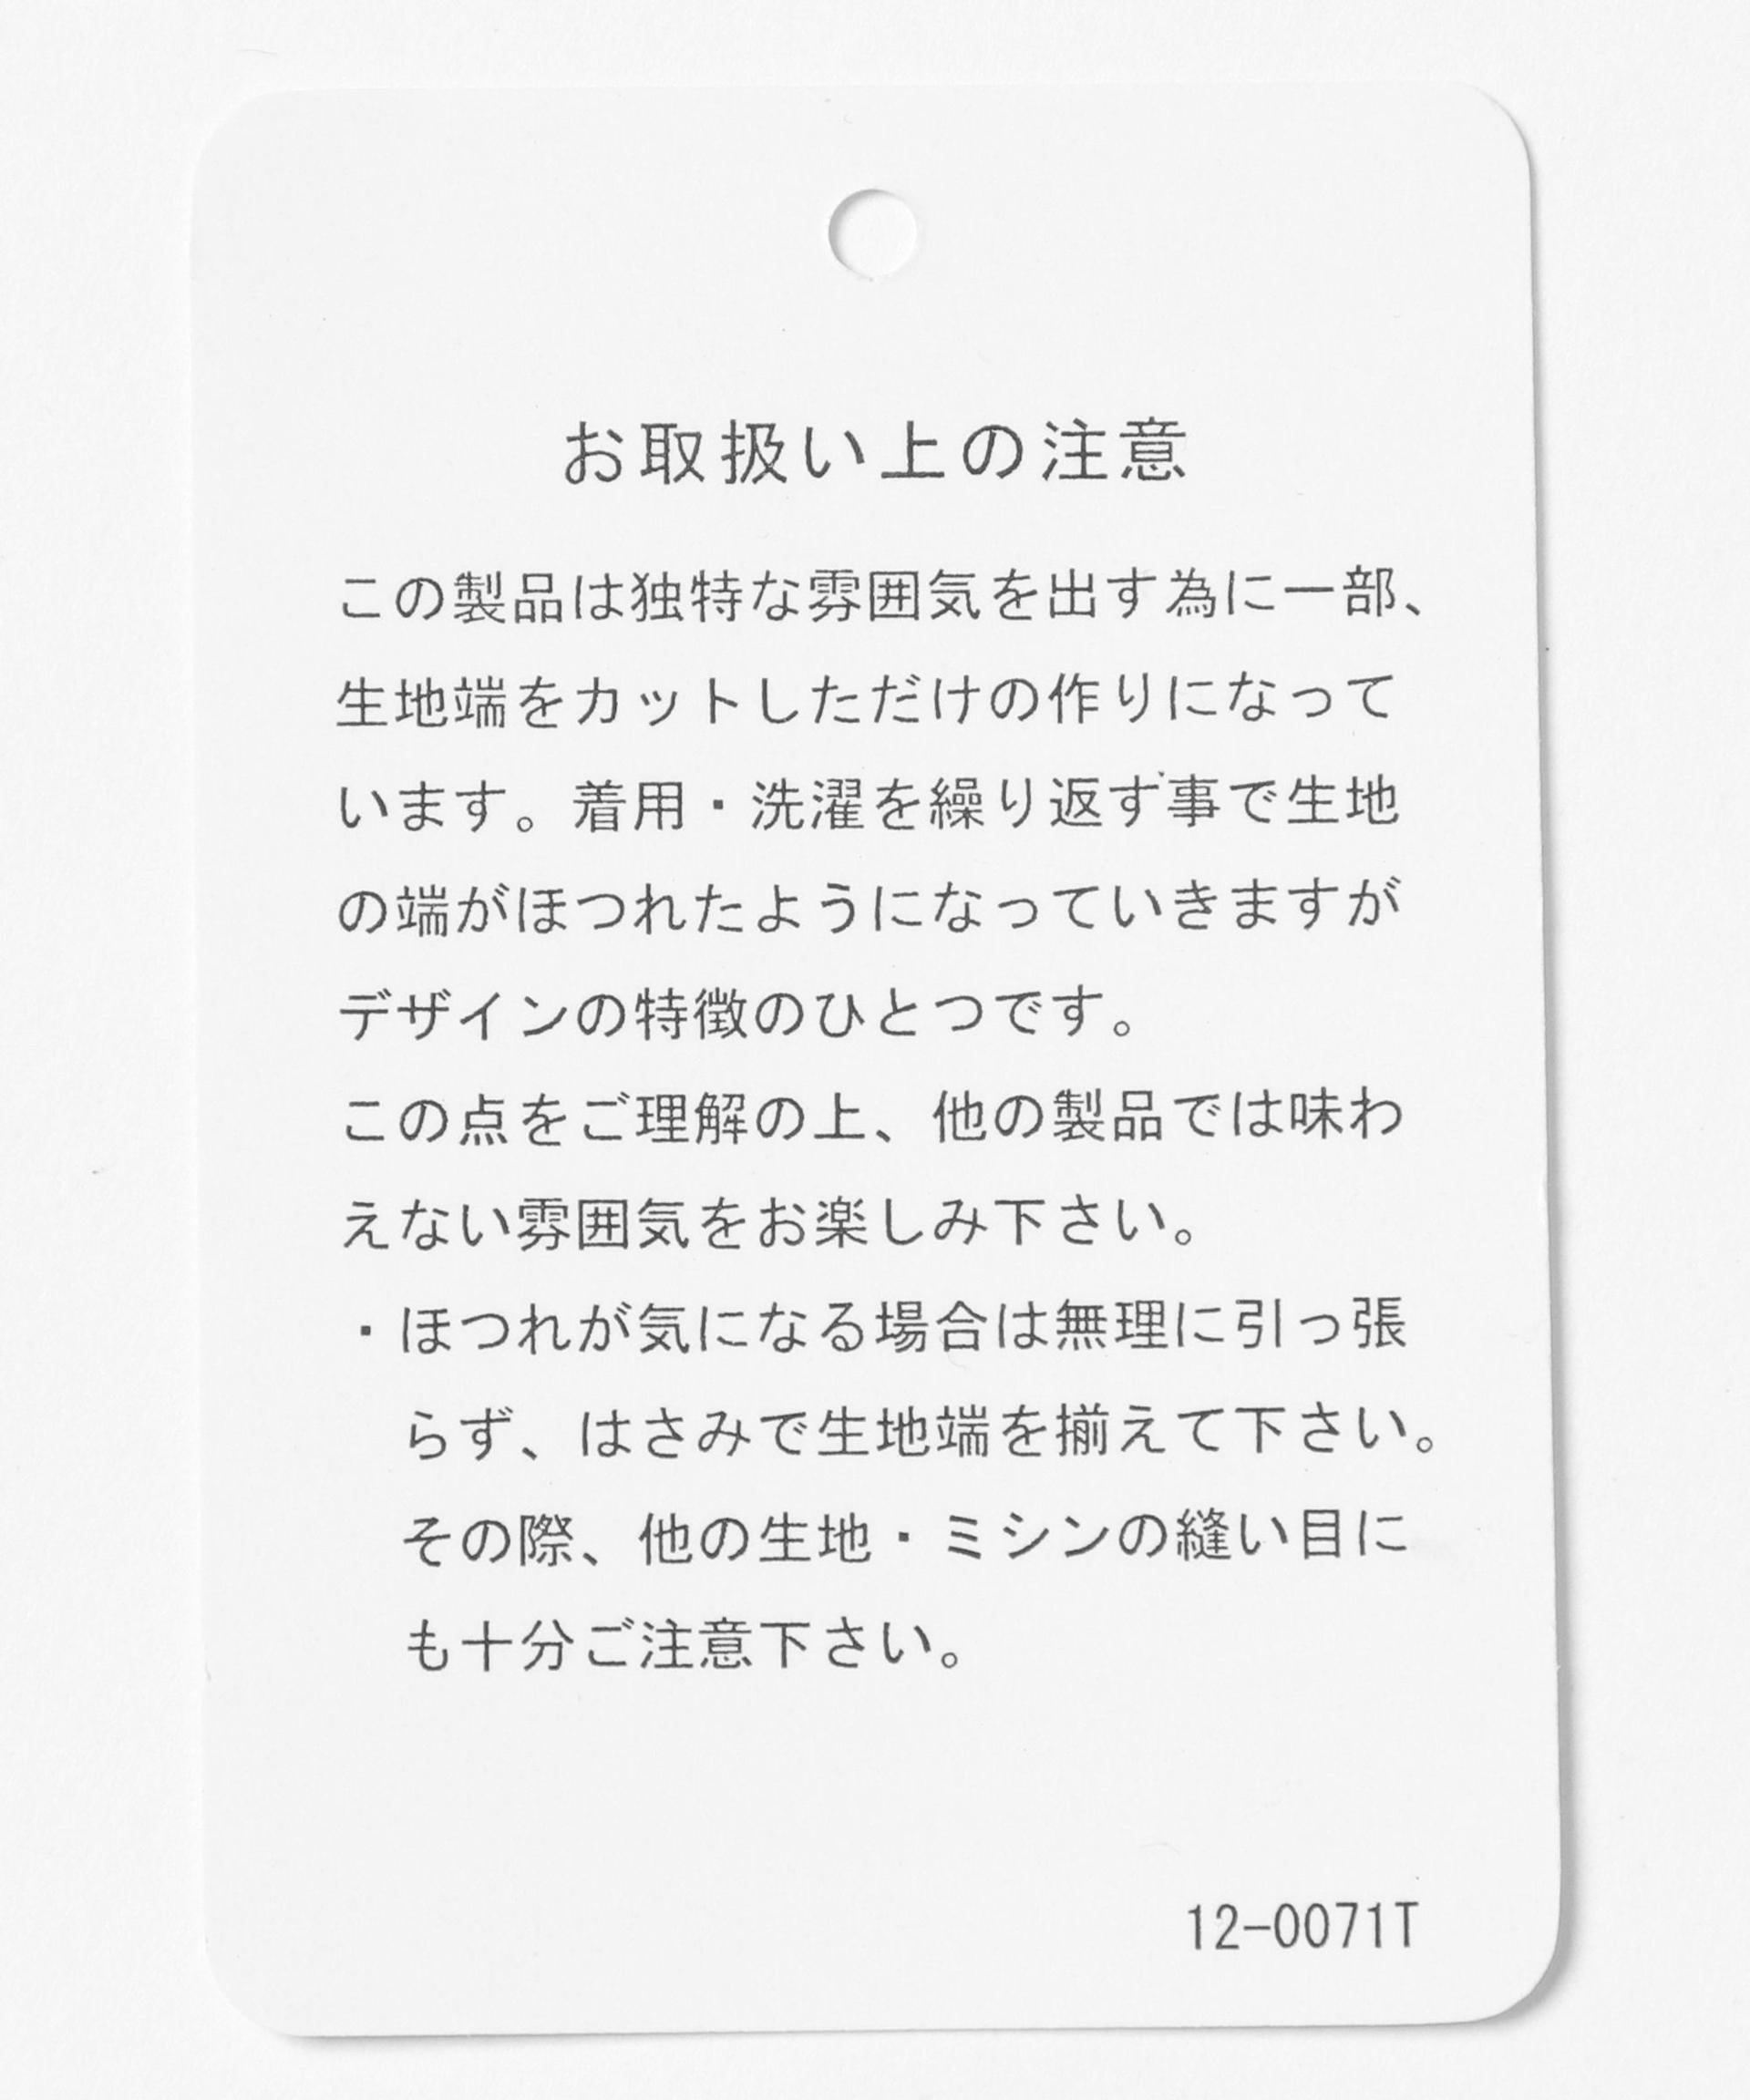 お取扱い上の注意
この製品は独特な雰囲気を出す為に一部、
生地端をカットしただけの作りになって
います。着用・洗濯を繰り返す事で生地
の端がほつれたようになっていきますが
デザインの特徴のひとつです。
この点をご理解の上、他の製品では味わ
えない雰囲気をお楽しみ下さい。
・ほつれが気になる場合は無理に引っ張
らず、はさみで生地端を揃えて下さい。
その際、他の生地・ミシンの縫い目に
も十分ご注意下さい。
12-0071T